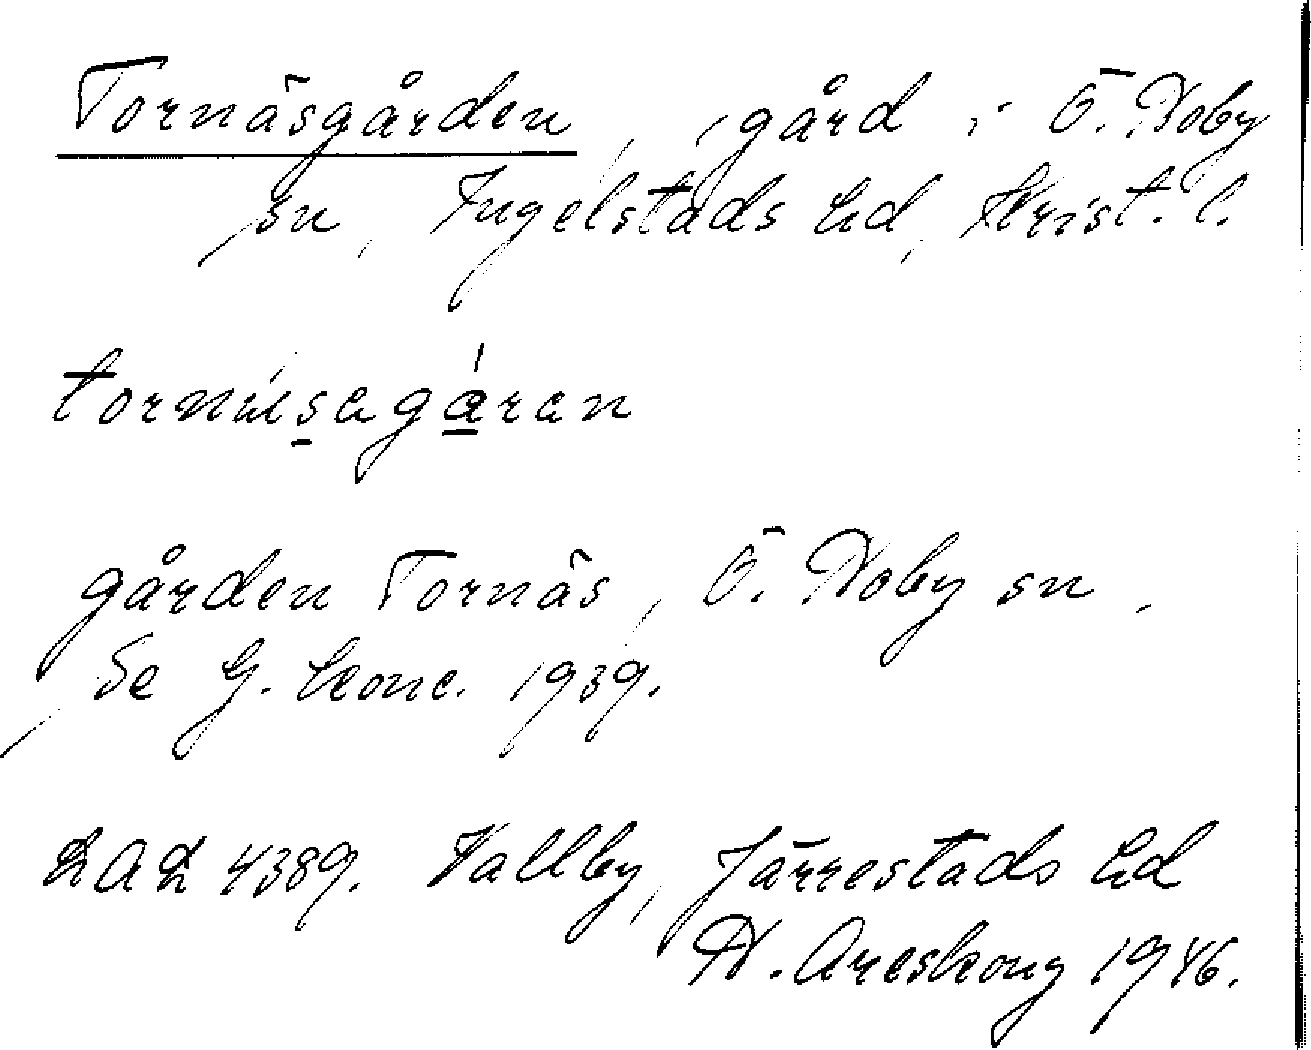 Tornäsgården, gård i Ö. Hoby
sn, Ingelstads hd, Krist. l.
gården Tornäs, Ö. Hoby sn,
Se G. konc. 1939.
LAL 4389. Vallby, Järrestads hd
H. Areskoug 1946.